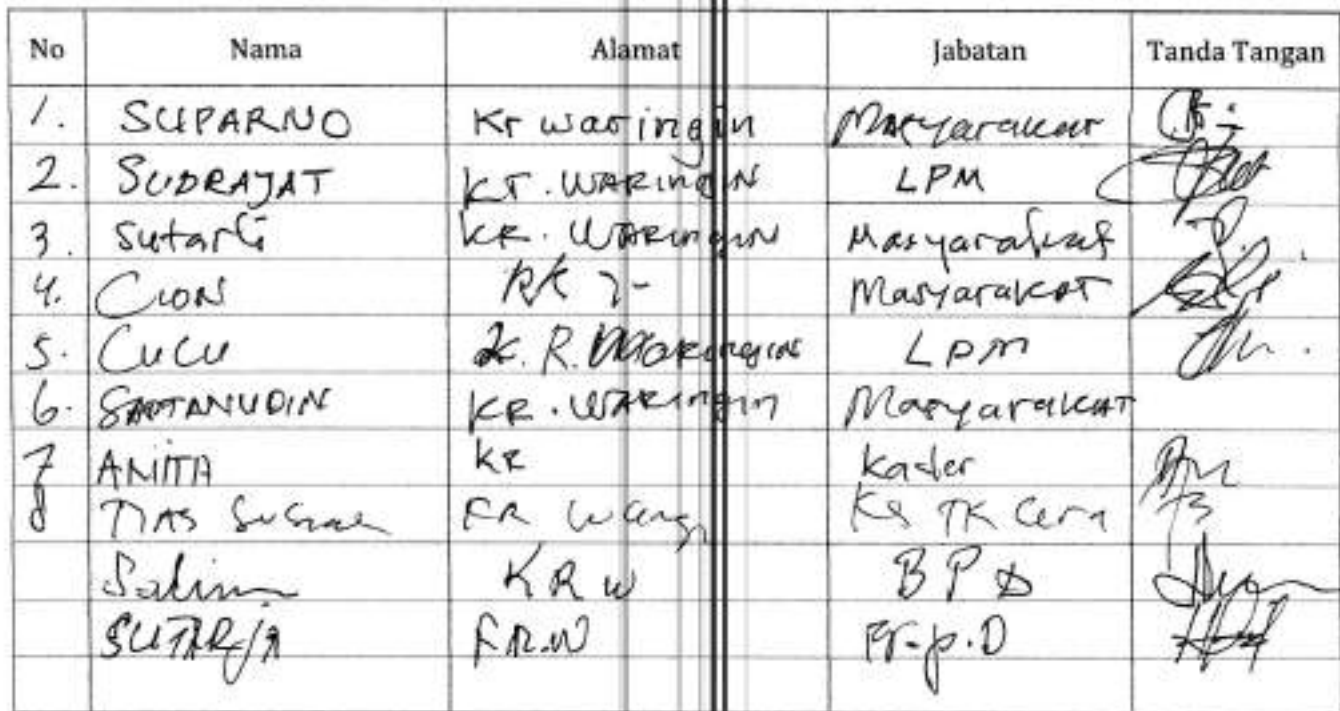 No Nama Alamat Jabatan Tanda Tangan
1. SUPARNO Kr waringin Masyarakat
2. SUDRAJAT KR. WARINGIN LPM
3. Sutarti KR. WARINGIN Masyarakat
4. Cion RK 7- Masyarakat
5. Cucu K. R. WARINGIN LPM
6. SAPTANUDIN KR. WARINGIN Masyarakat
7 ANITA KR Kader
8 TIAS KR TK
Salim KRW BPD
SUTARJA